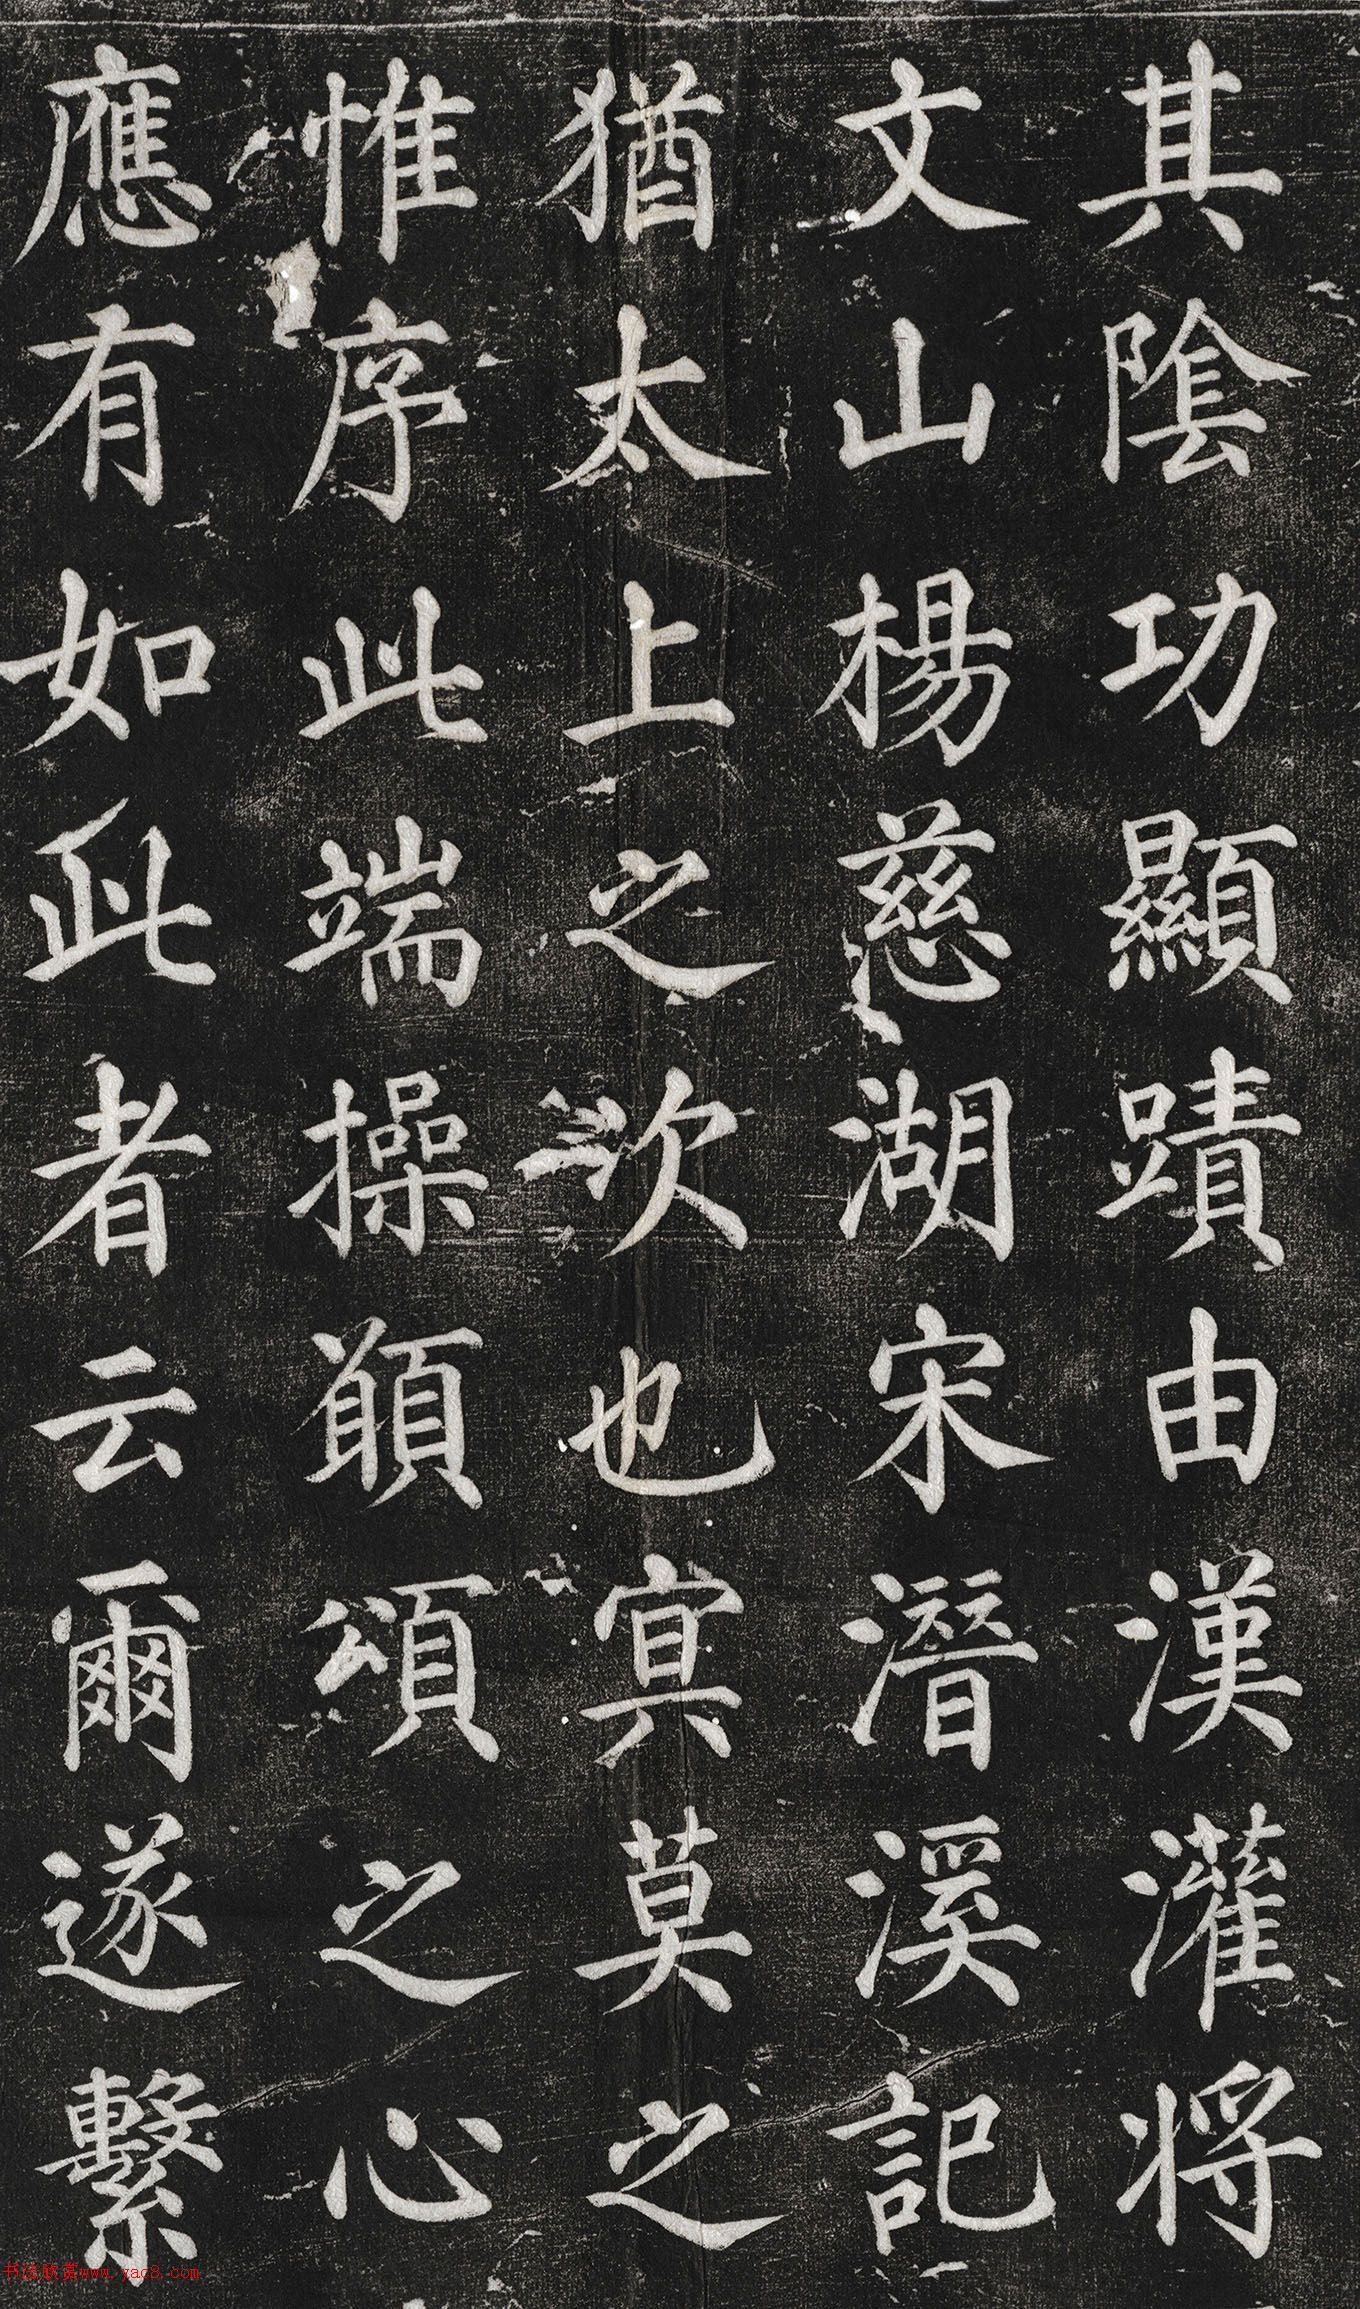 其陰功顯蹟由漢灌將
文山楊慈湖宋潛溪記
猶太上之次也冥莫之
惟序此端操顓頌之心
應有如此者云爾遂繫
书法欣赏www.yac8.com